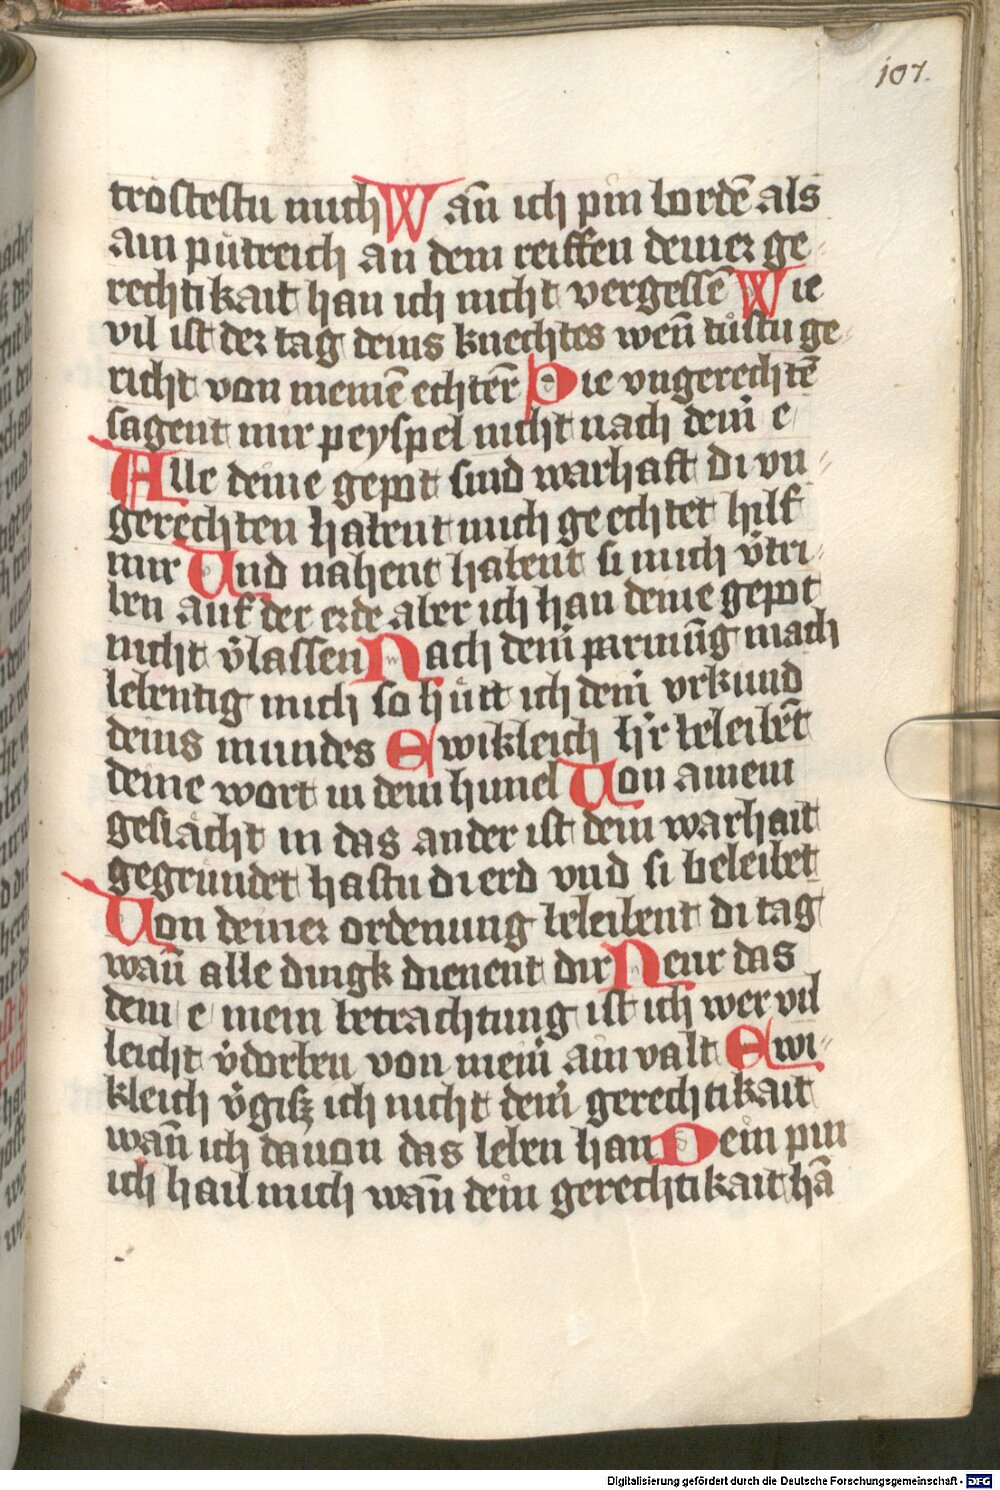 107.
trostestu mich Wān ich pin wordē als
ain pütreich an dem reiffen deiner ge
rechtikait han ich nicht vergessē Wie
vil ist der tag deins knechtes wen̄ tůstu ge
richt von meinē echtēr Die vngerechtē
sagent mir peyspel nicht nach dein̄ e
Alle deine gepot sind warhaft di vn-
gerechten habent mich geechtet hilf
mir Und nahent habent si mich v̓tri-
ben auf der erde aber ich han deine gepot
nicht v̓lassen Nach dein̄ parmūg mach
lebentig mich so hütt ich dein̄ vrkund
deins mundes Ewikleich h̓r beleibēt
deine wort in dem himel Von ainem
geslächt in das ander ist dein warhait
gegrundet hastu di erd vnd si beleibet
Von deiner ordenung beleibent di tag
wan̄ alle dingk dienent dir Neur das
dein e mein betrachtung ist ich wer vil
leicht v̓dorben von mein̄ ainvalt Ewi-
kleich v̓gisz ich nicht dein̄ gerechtikait
wan̄ ich dauon das leben han Dein pin
ich hail mich wan̄ dein gerechtikait hā
Digitalisierung gefördert durch die Deutsche Forschungsgemeinschaft - DFG